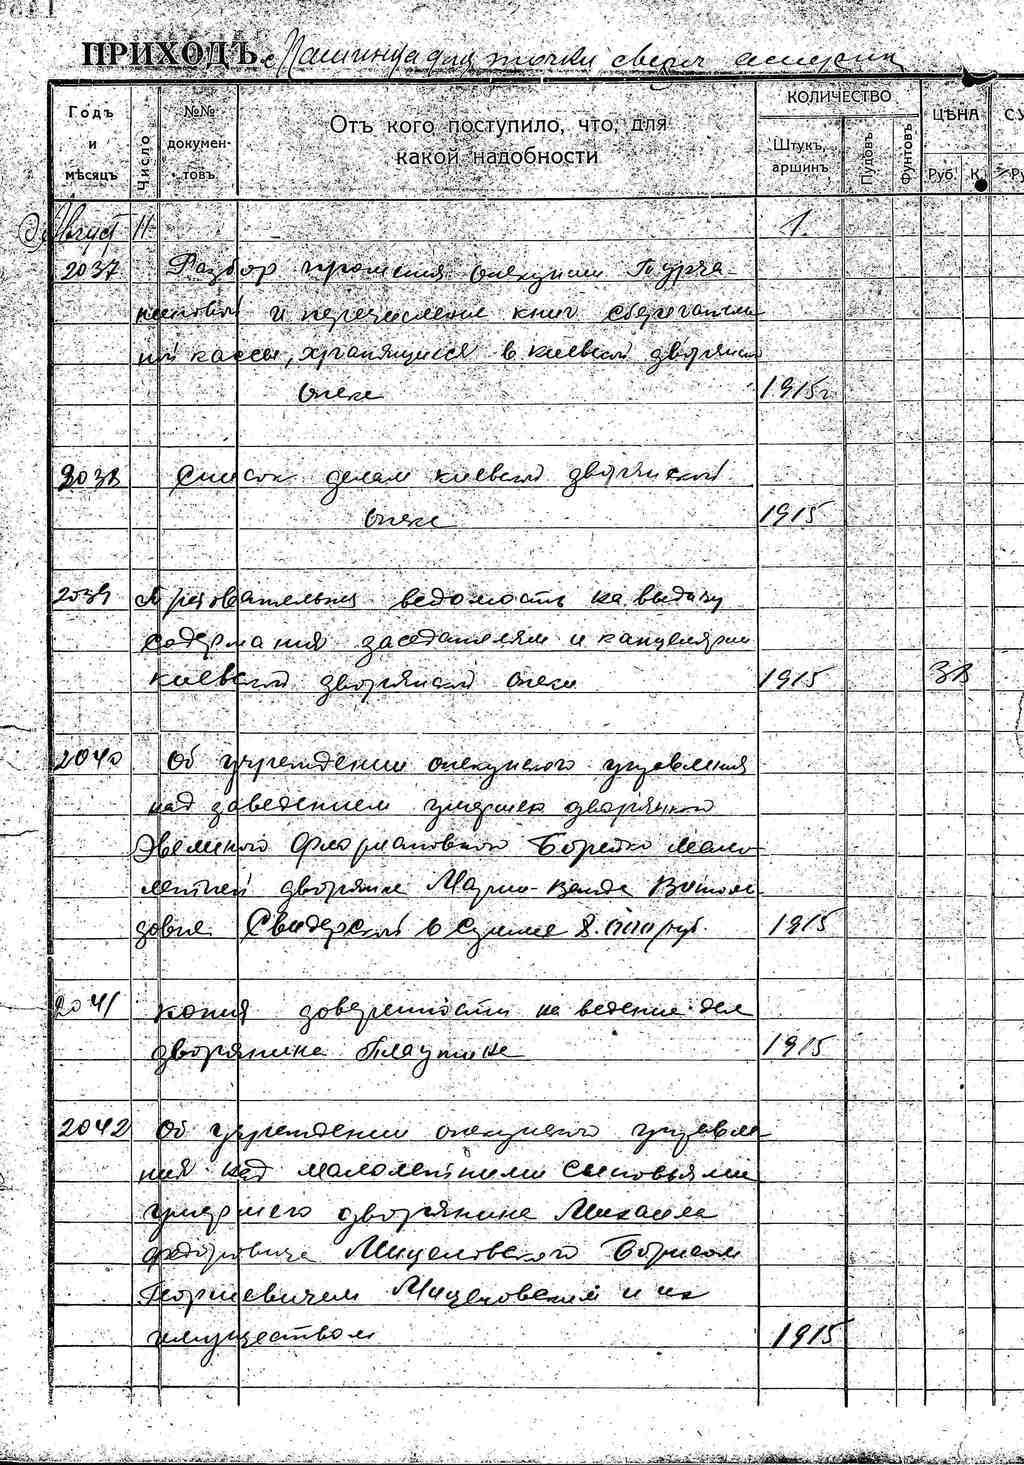 ПРИХОДЪ
Годъ и мѣсяцъ
Число
№№ докумен-товъ
Отъ кого поступило, что, для
какой надобности
КОЛИЧЕСТВО
Штукъ, аршинъ
Пудовъ
Фунтовъ
ЦѢНА
Руб. К.
Август 11 1.
2037 Разбор прошения опекунши
и перечисление книг сберегатель
ной кассы, хранящихся в киевской дворянской
опеке 1915г
2038 Список делам киевской дворянской
опеке 1915
2039 Требовательная ведомость на выдачу
содержания заседателям и канцелярии
киевской дворянской опеки 1915 38
2040 Об учреждении опекунского управления
над заведением умершего дворянина
мало-
летней дворянке Марии-Ванде Витоль
довне Свидерской в сумме 8.000 руб. 1915
2041 копия доверенности на ведение дел
дворянина Плаутине 1915
2042 Об учреждении опекунского управле-
ния над малолетними сыновьями
умершего дворянина Михаила
Федоровича Борисом
Георгиевичем и их
имуществом 1915